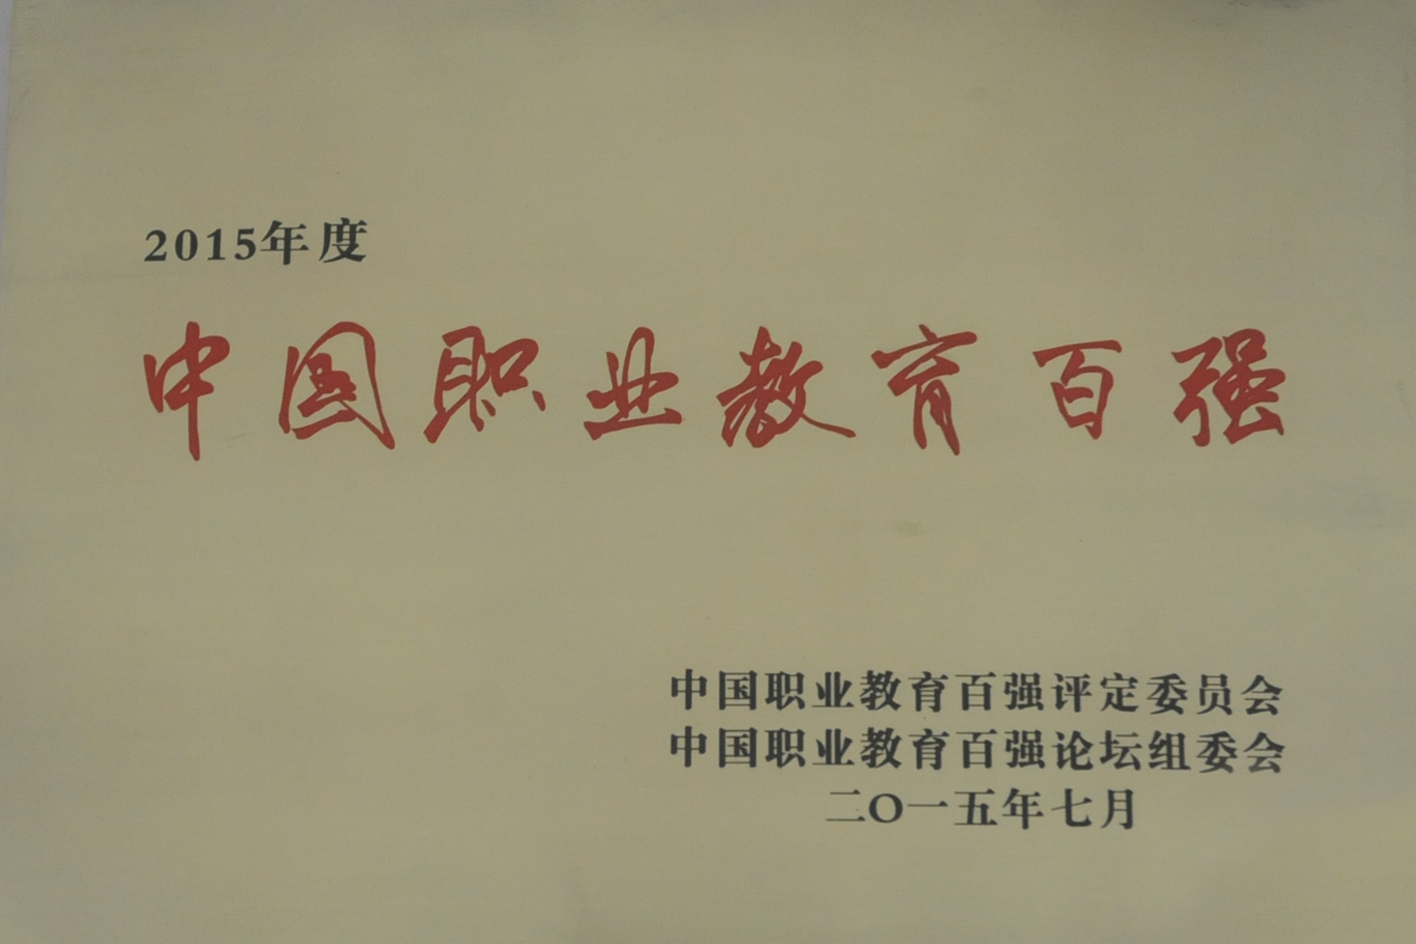 2015年度
中国职业教育百强
中国职业教育百强评定委员会
中国职业教育百强论坛组委会
二〇一五年七月